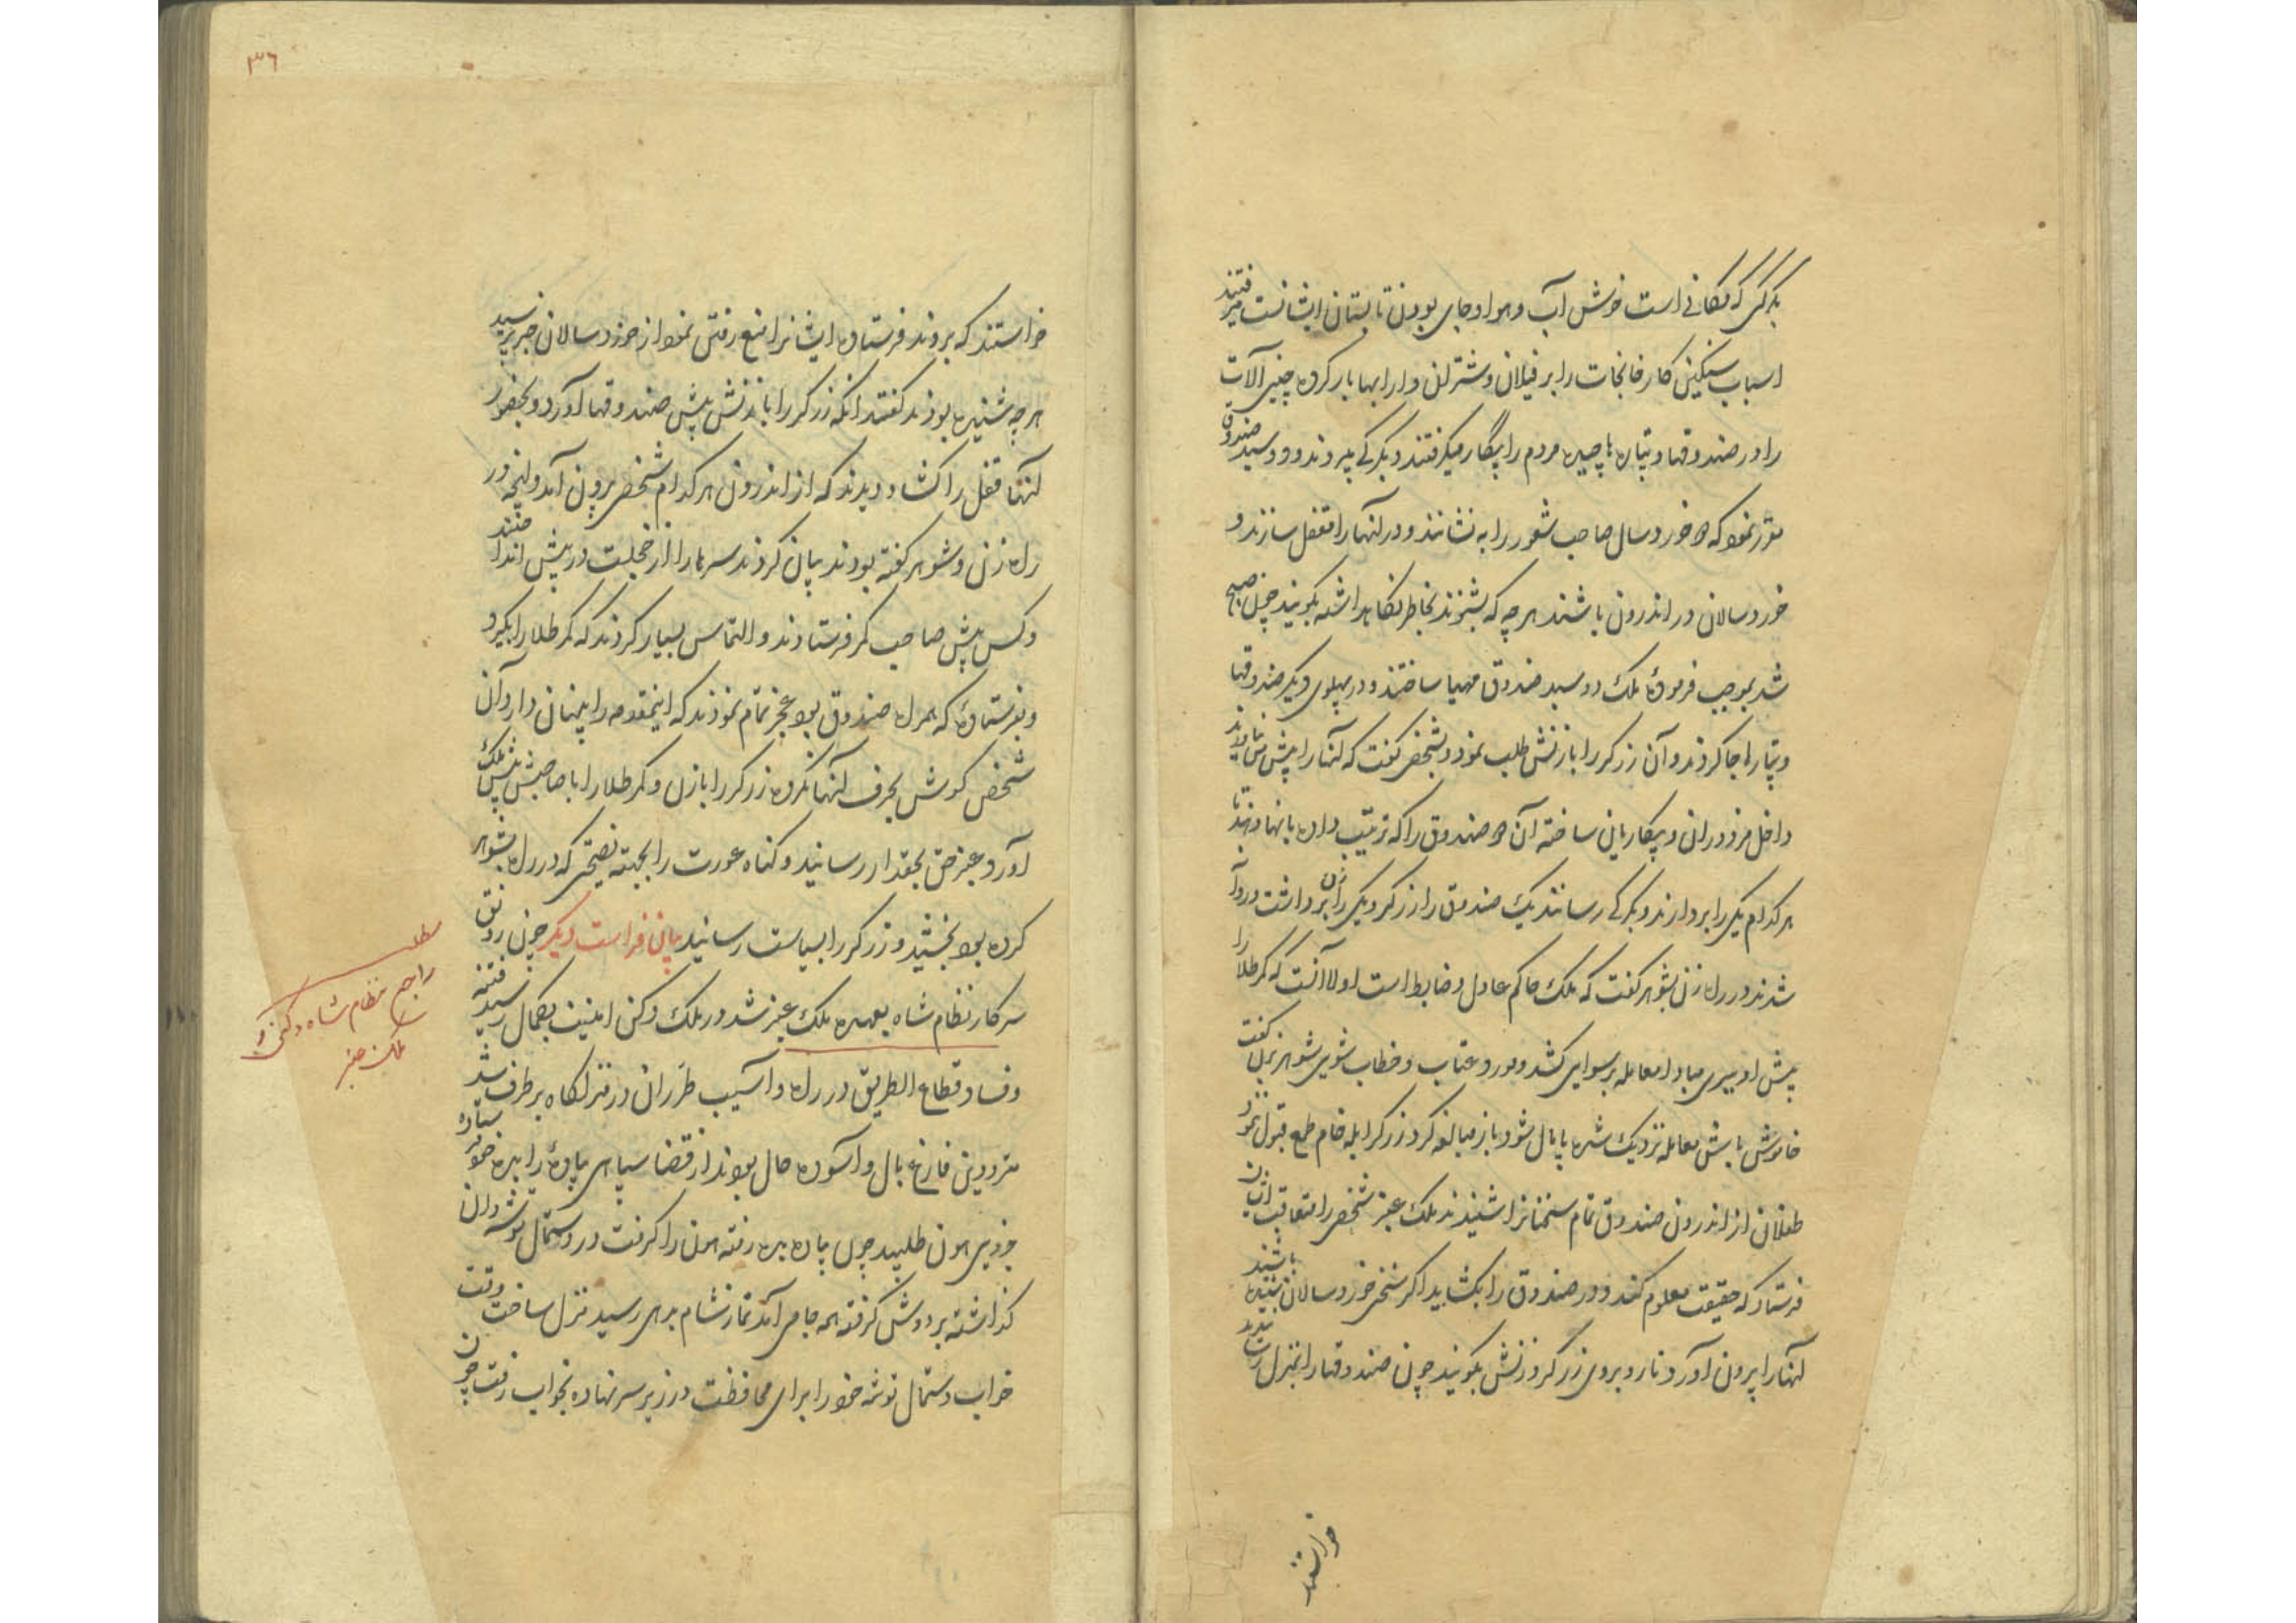 بکرکی که مکانی است خوش آب و هوا و جای بودن تابستان ایشانست میرفتند
اسباب سنگین کارخانجات را بر فیلان و شتران و ارابها بار کرده چینی آلات
را در صندوقها و پتاره پاچیده مردم را بیگار میگرفتند و بکرکی میبردند دو سبد صندوق
مقرر نمود که دو خوردسال صاحب شعور را به نشانند و در آنها را مقفل سازند و
خوردسالان در اندرون باشند هر چه که بشنوند بخاطر نگاهداشته بگویند چون صبح
شد بموجب فرموده ملک دو سبد صندوق مهیا ساختند و در پهلوی دیگر صندوقها
و پتاره جا کردند و آن زرگر را با زنش طلب نمود و بشخصی گفت که آنها را پیش
داخل مزدوران و بیگاریان ساخته آن دو صندوق را که ترتیب داده بآنها دهند تا
هر کدام یکی را بردارند و بکرکی رسانند یک صندوق را زرگر و یکی را زن برداشت و روان
شدند در راه زن بشوهر گفت که ملک حاکم عادل و ضابط است اولا آنست که کمر طلا را
پیش او ببری مبادا معامله برسوایی کشد و مورد عتاب و خطاب شوی شوهر بزن گفت
خاموش باش معامله نزدیک شده پایمال شود باز مبالغه کرد زرگر ابله خام طمع قبول ننمود
طفلان از اندرون صندوق تمام سخنانرا شنیدند ملک عنبر شخصی را متعاقب ایشان
فرستاد که حقیقت معلوم کند و در صندوق را بکشاید اگر سخنی خوردسالان شنیده باشند
آنها را بیرون آورد تا روبروی زرگر و زنش بگویند چون صندوقها را بمنزل رسانیده
خواستند
٣٦
خواستند که بروند فرستاده ایشانرا منع رفتن نمود از خوردسالان خبر پرسید
هر چه شنیده بودند گفتند آنکه زرگر را با زنش پیش صندوقها آورد و بحضور
آنها قفل را کشاد و دیدند که از اندرون هر کدام شخصی برون آمد و آنچه در
راه زن و شوهر گفته بودند بیان کردند سرها را از خجلت در پیش انداختند
و کس پیش صاحب کمر فرستادند و التماس بسیار کردند که کمر طلا را بگیرد
و بفرستاده که همراه صندوق بود عجز تمام نمودند که اینمقدمه را پنهان دارد آن
شخص گوش بحرف آنها نکرده زرگر را با زن و کمر طلا را با صاحبش پیش ملک
آورد عنبر حق بحقدار رسانید و گناه عورت را بجهته نصیحتی که در راه بشوهر
کرده بود بخشید و زرگر را بسیاست رسانید بیان فراست دیگر چون رونق
سرکار نظام شاه بعهده ملک عنبر شد در ملک دکن امنیت بکمال رسید فتنه
و فساد قطاع الطریق در راه و آسیب طراران در منزلگاه بر طرف شد
مترددین فارغ بال و آسوده حال بودند از قضا سپاهی پیاده را بدیه خود فرستاده
جزوی هون طلبید چون پیاده بدیه رفته هون را گرفت در دستمال توشه دان
گذاشته بر دوش گرفته همه جا می آمد تا نماز شام بدهی رسید منزل ساخت وقت
خواب دستمال توشه خود را برای محافظت در زیر سر نهاده بخواب رفت چون
مطلب
راجع نظام شاه دکنی و
ملک عنبر